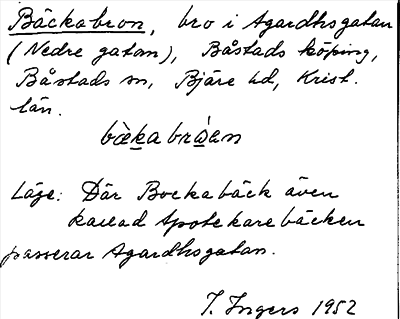 Bäckabron, bro i Agardhsgatan
(Nedre gatan), Båstads köping,
Båstads sn, Bjäre hd, Krist.
län.
Läge: Där Bockabäck även
kallad Apotekarebäcken
passerar Agardhsgatan.
I. Ingers 1952